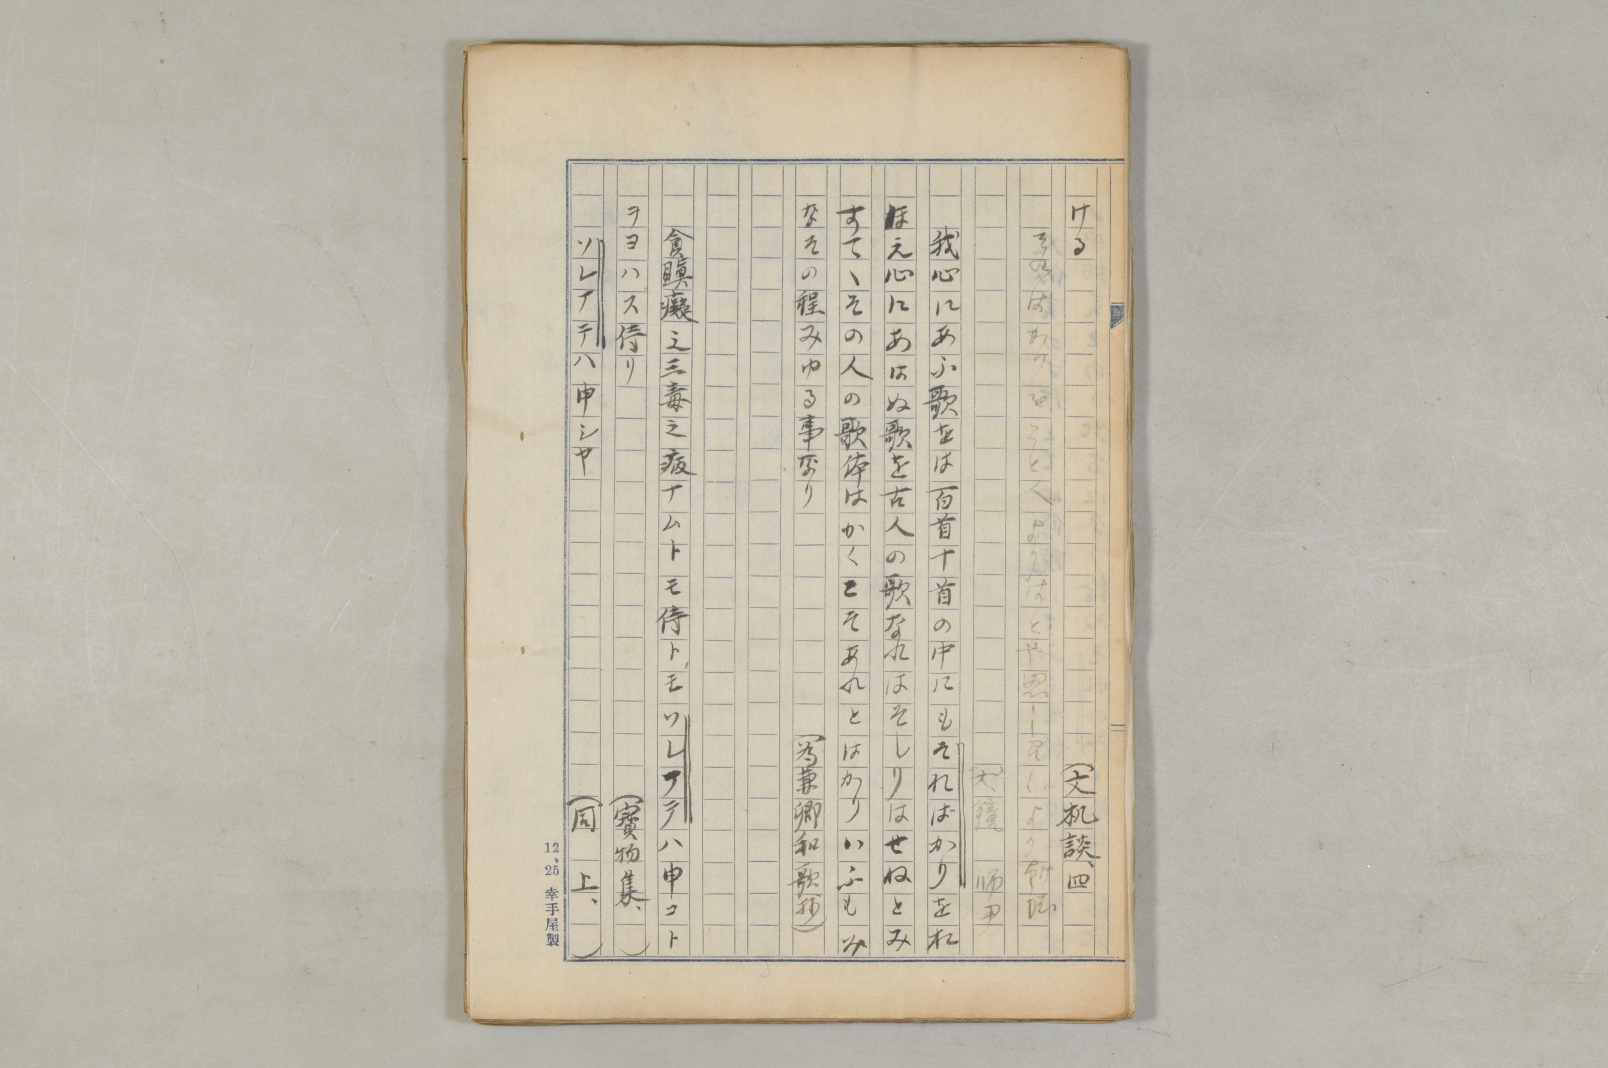 ける　（文机談、四
我心にあふ歌をは百首十首の中にもそればかりをお
ほえ心にあはぬ歌を古人の歌なれはそしりはせねとみ
すてゝその人の歌体はかくこそあれとはかりいふもみ
なその程みゆる事なり　（為兼卿和歌抄）
貪瞋癡之三毒之病ナムトモ侍トモソレアテハ申コト
ヲヨハス侍リ　（寶物集、）
ソレアテハ申シヤ　（同　上、）
12、25 幸手屋製